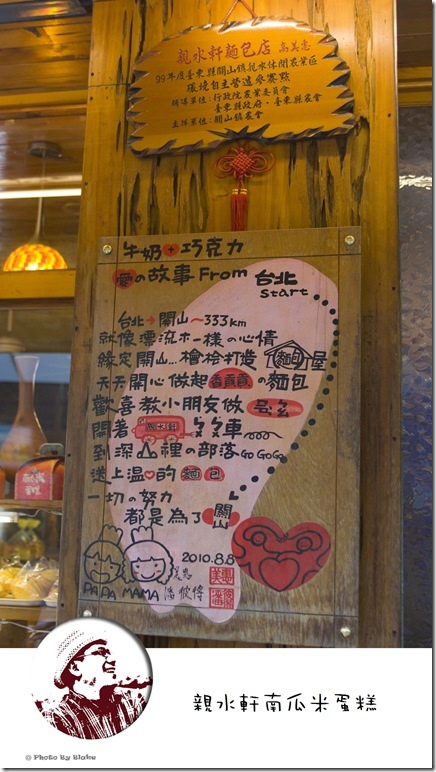 親水軒麵包店 高美惠
99年度臺東縣關山鎮親水休閒農業區
環境自主營造參賽點
輔導單位：行政院農業委員會
臺東縣政府．臺東縣農會
主辦單位：關山鎮農會
牛奶+巧克力
愛の故事From 台北
Start
台北→關山~333km
就像漂流木一樣の心情
緣定關山...檜檜打造 麵包屋
天天開心做起香貢貢の麵包
歡喜教小朋友做
開著 親水軒 ㄅㄨㄅㄨ車
到深山裡の部落GO GO GO
送上溫♥的麵包
一切の努力
都是為了關山
2010.8.8
美惠
PAPA MAMA 潘俊偉
親水軒南瓜米蛋糕
© Photo By Blake